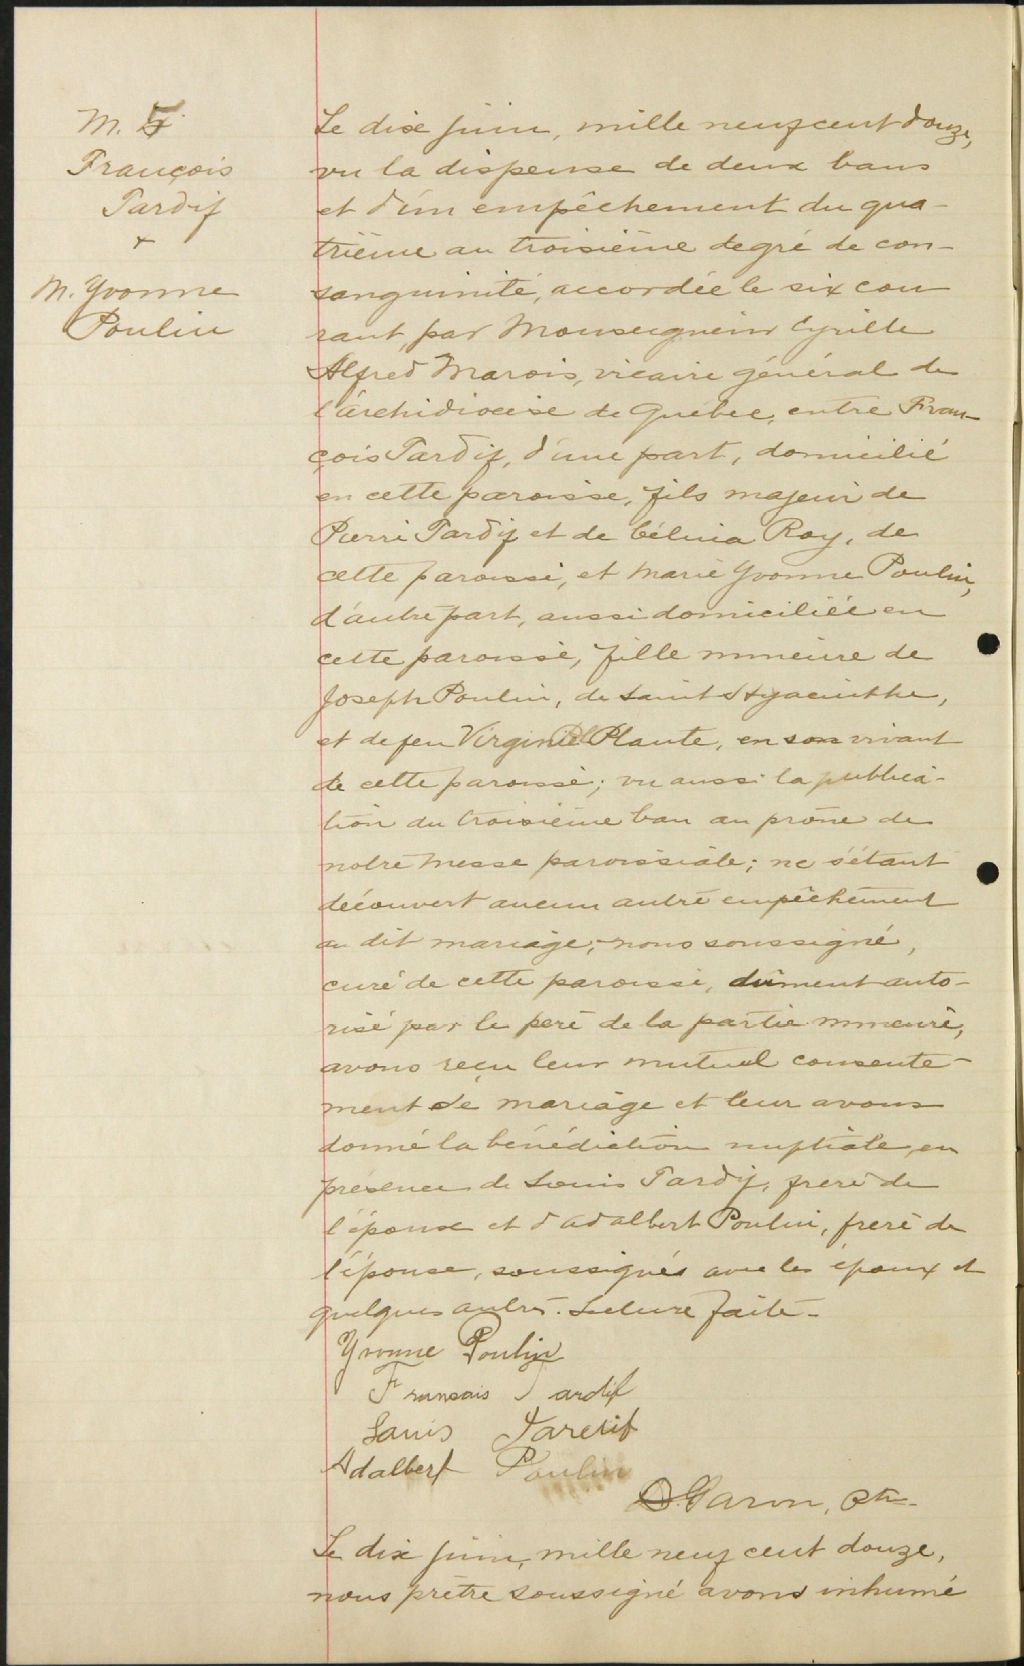 M. 5
François
Tardif
+
M. Yvonne
Poulin
Le dix juin, mille neuf cent douze,
vu la dispense de deux bans
et d'un empêchement du qua-
trième au troisième degré de con-
sanguinité, accordée le six cou
rant, par Monseigneur Cyrille
Alfred Marois, vicaire général de
l'archidiocèse de Québec, entre Fran-
çois Tardif, d'une part, domicilié
en cette paroisse, fils majeur de
Pierre Tardif et de Célina Roy, de
cette paroisse, et Marie Yvonne Poulin,
d'autre part, aussi domiciliée en
cette paroisse, fille mineure de
Joseph Poulin, de Saint Hyacinthe,
et de feu Virginie Plante, en son vivant
de cette paroisse; vu aussi la publica-
tion du troisième ban au prône de
notre messe paroissiale; ne s'étant
découvert aucun autre empêchement
au dit mariage; nous soussigné,
curé de cette paroisse, dûment auto-
risé par le père de la partie mineure,
avons reçu leur mutuel consente-
ment de mariage et leur avons
donné la bénédiction nuptiale, en
présence de Louis Tardif, frère de
l'époux et d'Adalbert Poulin, frère de
l'épouse, soussignés avec les époux et
quelques autres. Lecture faite.-
Yvonne Poulin
Francois Tardif
Louis Tardif
Adalbert Poulin
D. Garon, Ptr.
Le dix juin, mille neuf cent douze,
nous prêtre soussigné avons inhumé